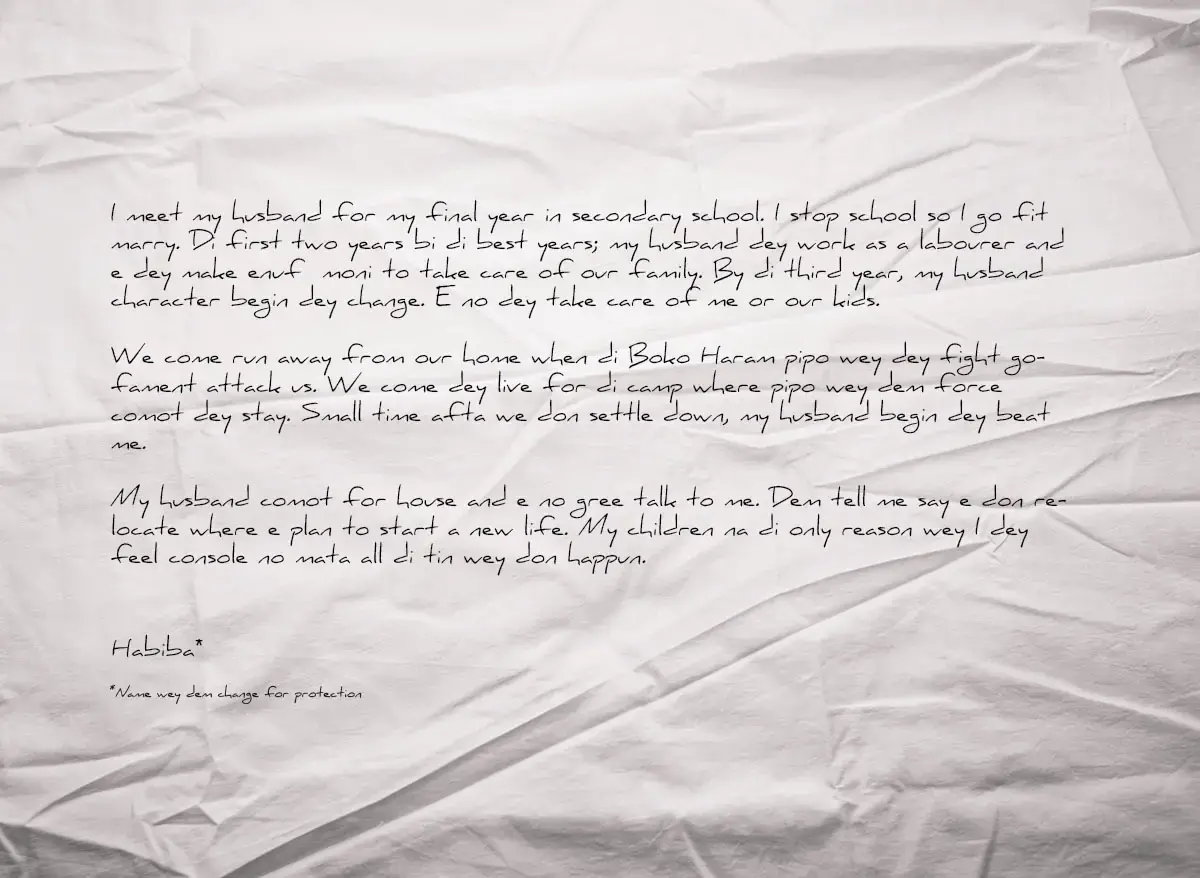 I meet my husband for my final year in secondary school. I stop school so I go fit
marry. Di first two years bi di best years; my husband dey work as a labourer and
e dey make enuf moni to take care of our family. By di third year, my husband
character begin dey change. E no dey take care of me or our kids.
We come run away from our home when di Boko Haram pipo wey dey fight go-
fament attack us. We come dey live for di camp where pipo wey dem force
comot dey stay. Small time afta we don settle down, my husband begin dey beat
me.
My husband comot for house and e no gree talk to me. Dem tell me say e don re-
locate where e plan to start a new life. My children na di only reason wey I dey
feel console no mata all di tin wey don happun.
Habiba*
*Name wey dem change for protection